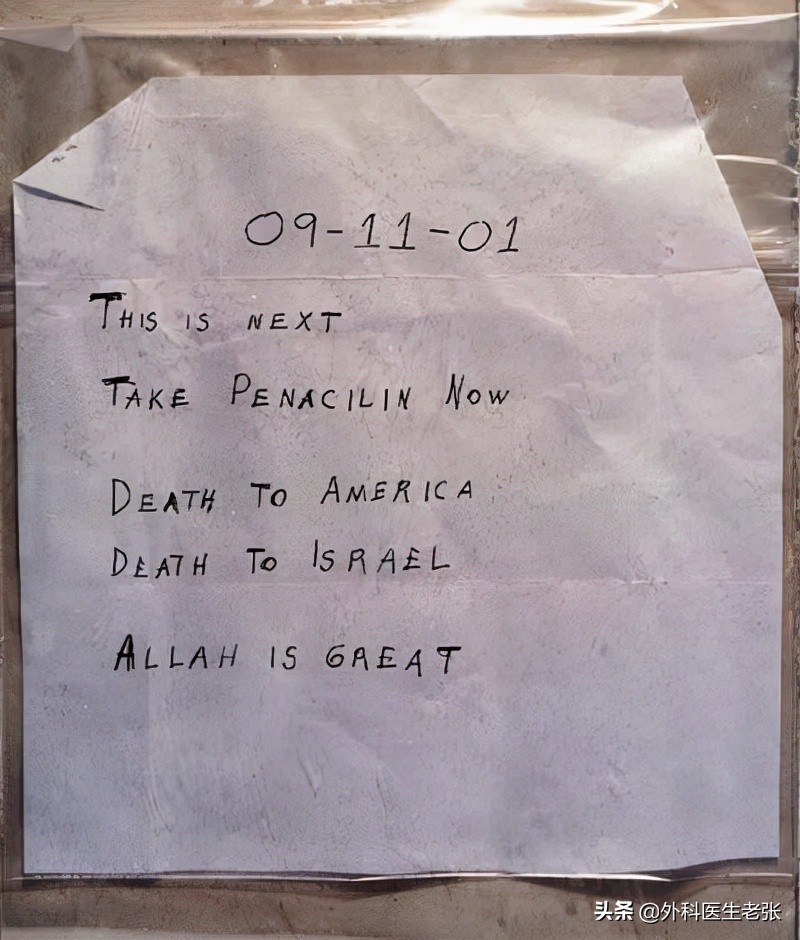 09-11-01
THIS IS NEXT
TAKE PENACILIN NOW
DEATH TO AMERICA
DEATH TO ISRAEL
ALLAH IS GREAT
头条 @外科医生老张